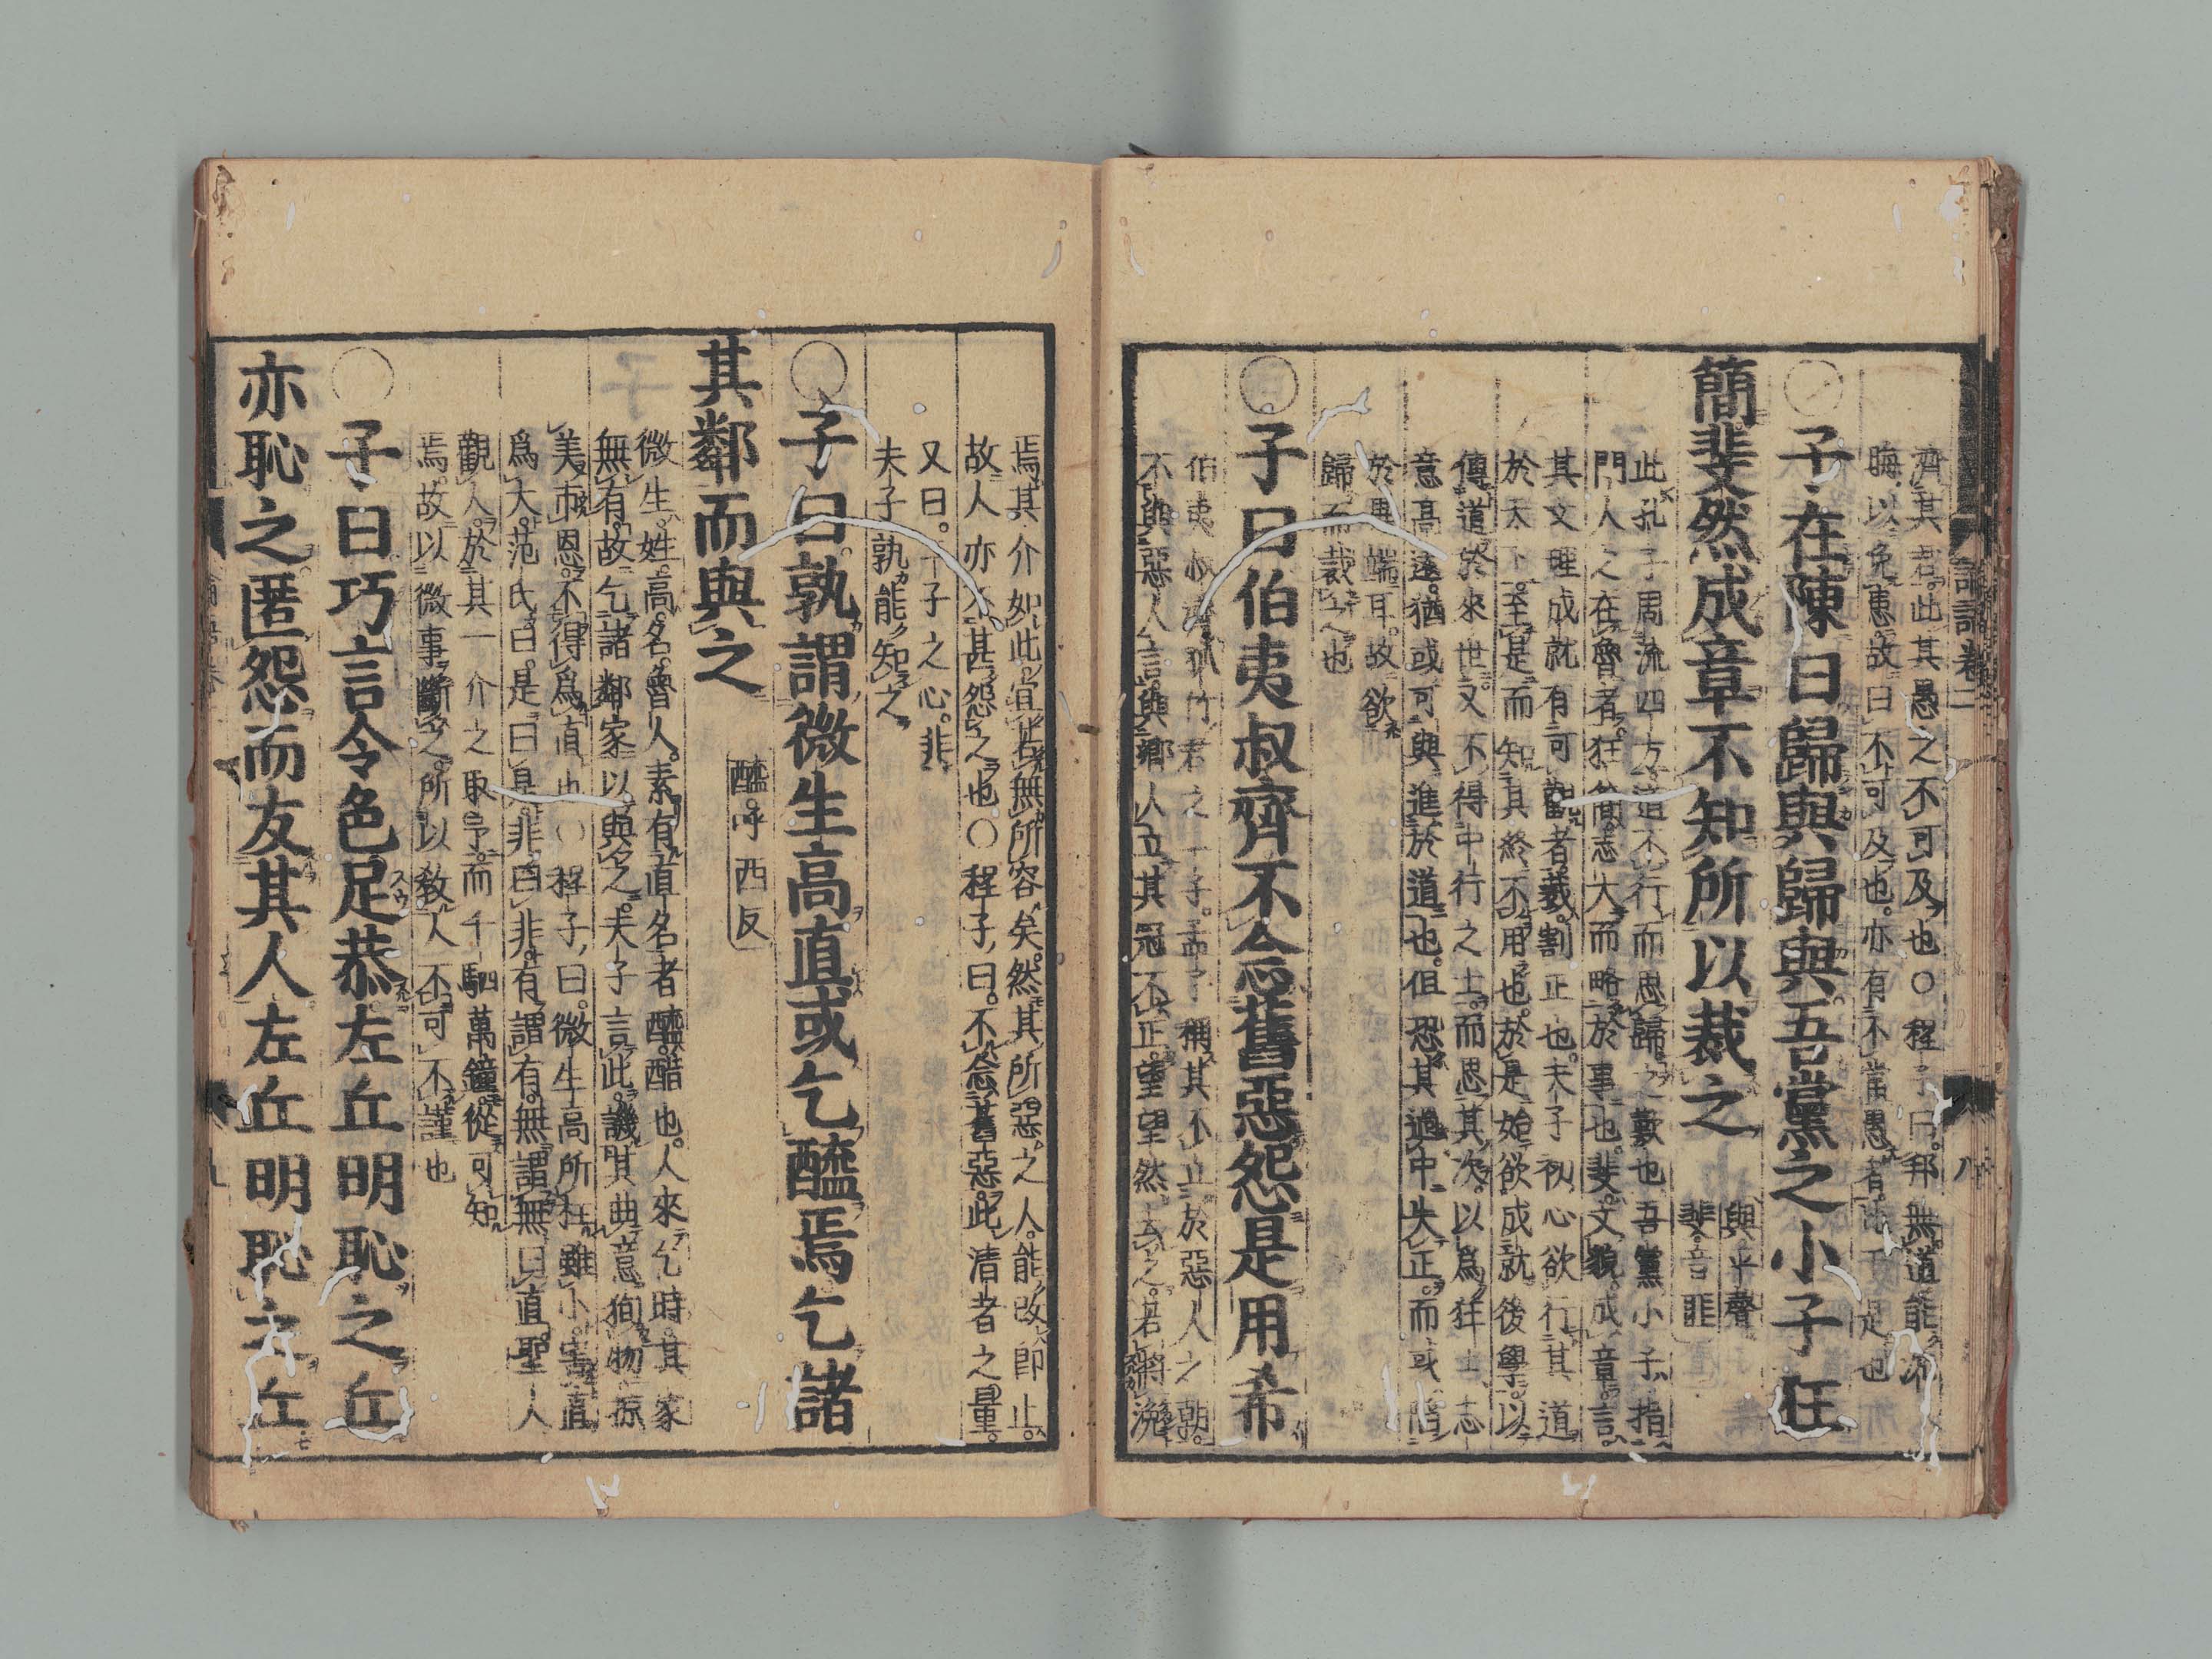 濟其君此其愚之不可及也○程子曰邦無道能沈
晦以免患故曰不可及也亦有不當愚者比干是也
○子在陳曰歸與歸與吾黨之小子狂
簡斐然成章不知所以裁之
與平聲
斐音匪
此孔子周流四方道不行而思歸之歎也吾黨小子指
門人之在魯者狂簡志大而略於事也斐文貌成章言
其文理成就有可觀者裁割正也夫子初心欲行其道
於天下至是而知其終不用也於是始欲成就後學以
傳道於來世又不得中行之士而思其次以爲狂士志
意高遠猶或可與進於道也但恐其過中失正而或陷
於異端耳故欲
歸而裁之也
○子曰伯夷叔齊不念舊惡怨是用希
伯夷叔齊孤竹君之二子孟子稱其不立於惡人之朝
不與惡人言與鄕人立其冠不正望望然去之若將浼
焉其介如此宜若無所容矣然其所惡之人能改即止
故人亦不甚怨之也○程子曰不念舊惡此清者之量
又曰二子之心非
夫子孰能知之
○子曰孰謂微生高直或乞醯焉乞諸
其鄰而與之
醯呼西反
微生姓高名魯人素有直名者醯醋也人來乞時其家
無有故乞諸鄰家以與之夫子言此譏其曲意徇物掠
美市恩不得爲直也○程子曰微生高所枉雖小害直
爲大范氏曰是曰是非曰非有謂有無謂無曰直聖人
觀人於其一介之取予而千駟萬鐘從可知
焉故以微事斷之所以敎人不可不謹也
○子曰巧言令色足恭左丘明恥之丘
亦恥之匿怨而友其人左丘明恥之丘